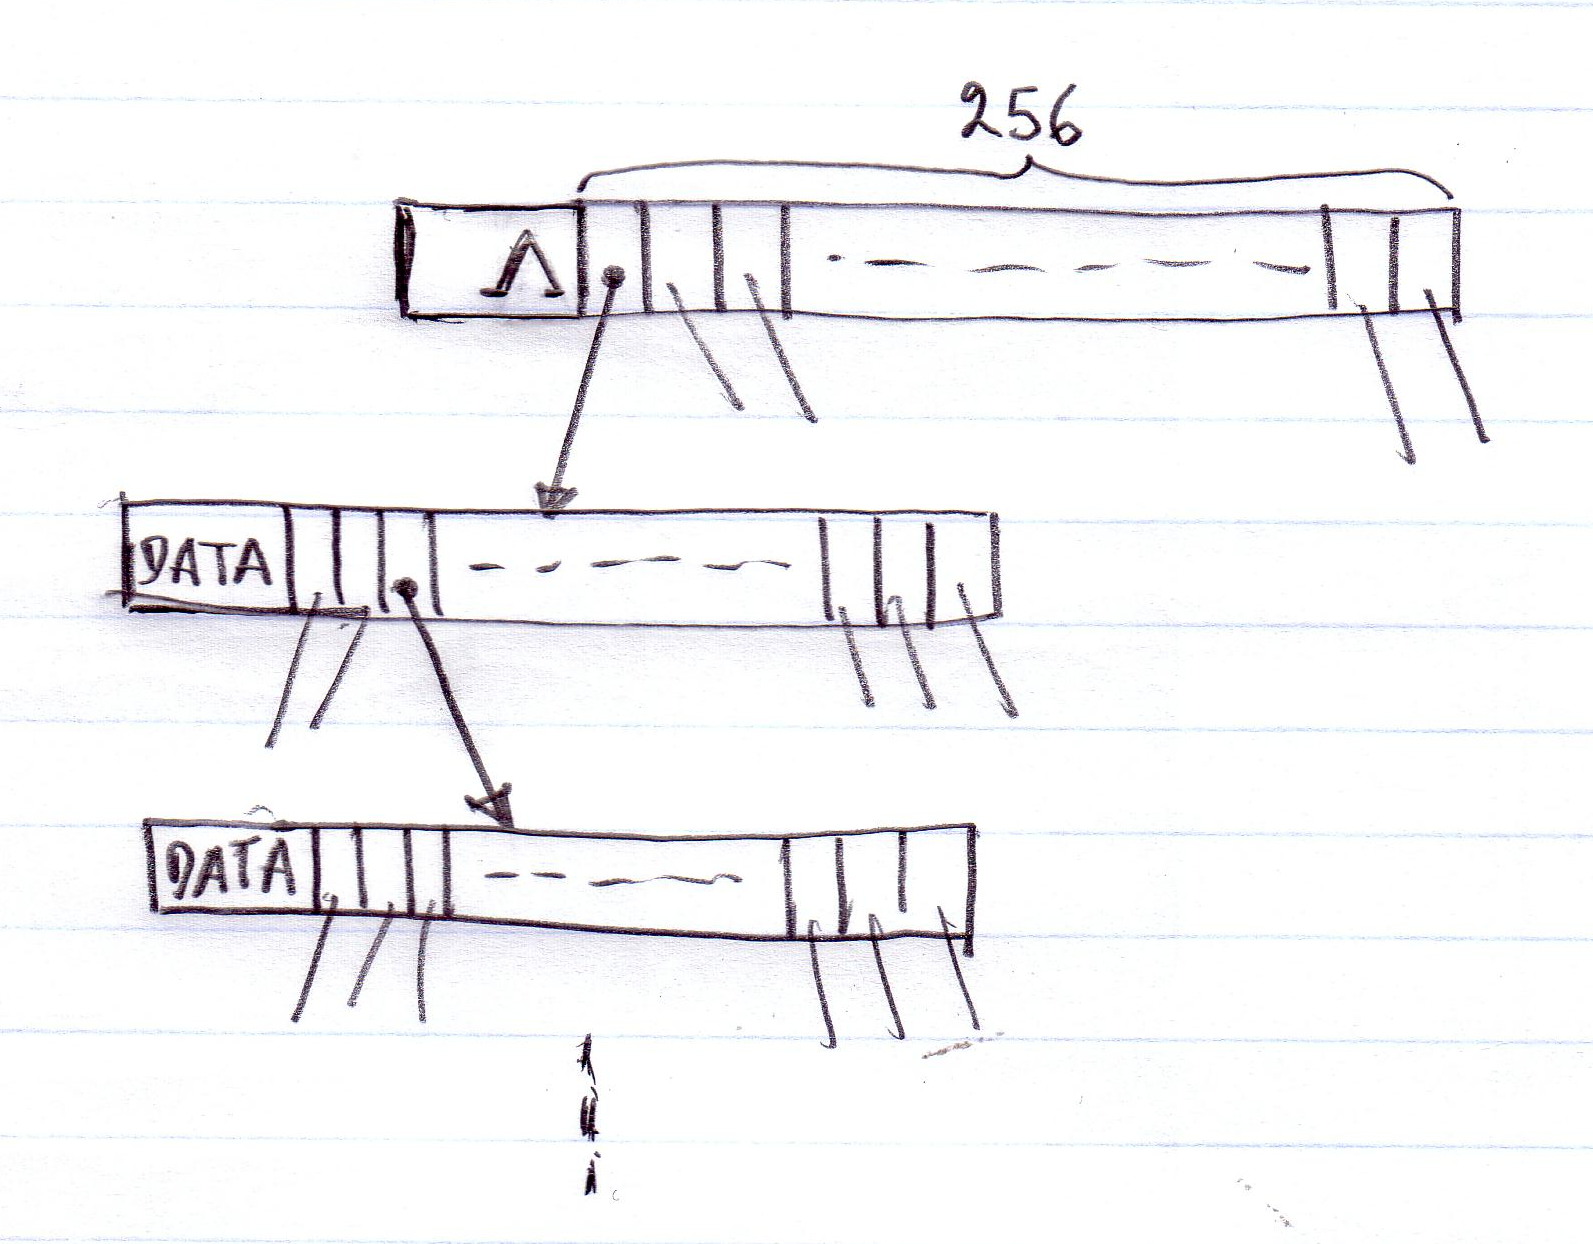 256
Λ
DATA
DATA